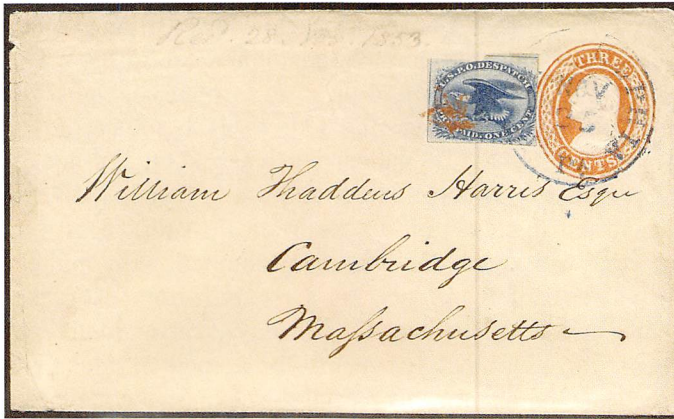 1853.
U.S.P.O. DESPATCH
PRE-PAID. ONE CENT.
THREE
CENTS
William Thaddeus Harris Esqr
Cambridge
Maſsachusetts